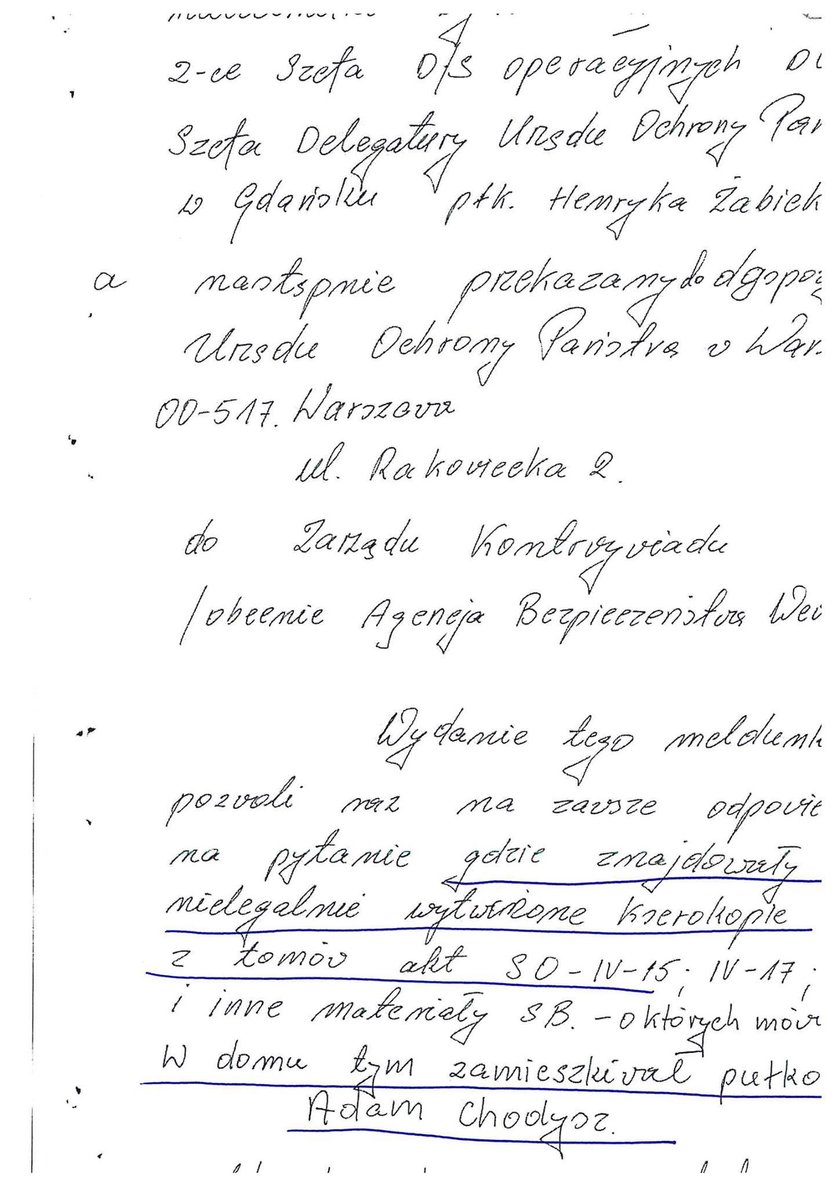 2-ce Szefa D/S operacyjnych
Szefa Delegatury Urzędu Ochrony
w Gdańsku płk. Henryka Żabick
a następnie przekazany do dyspoz
Urzędu Ochrony Państwa w War
00-517. Warszawa
ul. Rakowiecka 2.
do Zarządu Kontrwywiadu
/obecnie Agencja Bezpieczeństwa Wew
Wydanie tego meldunk
pozwoli raz na zawsze odpowie
na pytanie gdzie znajdowały
nielegalnie wytworzone kserokopie
z tomów akt SO-IV-15; IV-17;
i inne materiały SB. - o których mów
W domu tym zamieszkiwał pułko
Adam Chodysz.